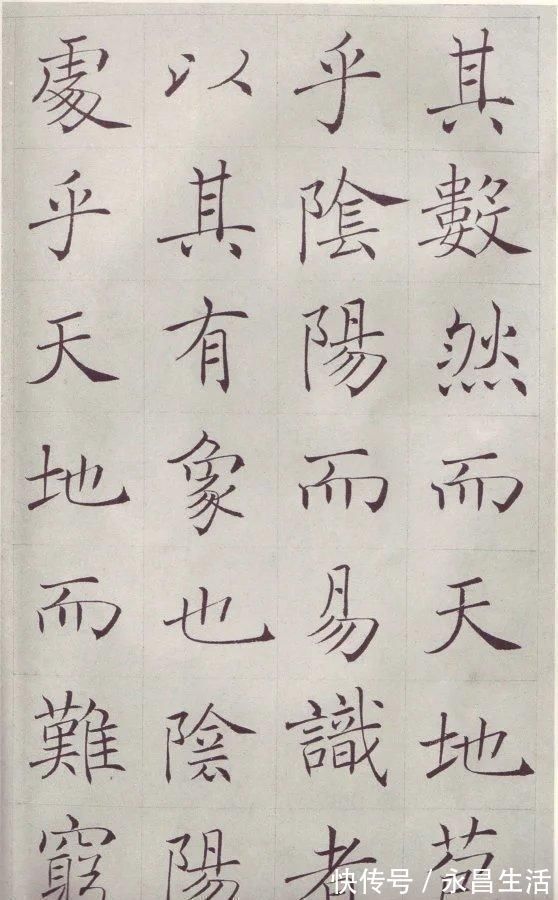 其數然而天地苞
乎陰陽而易識者
以其有象也陰陽
處乎天地而難窮
快传号/永昌生活